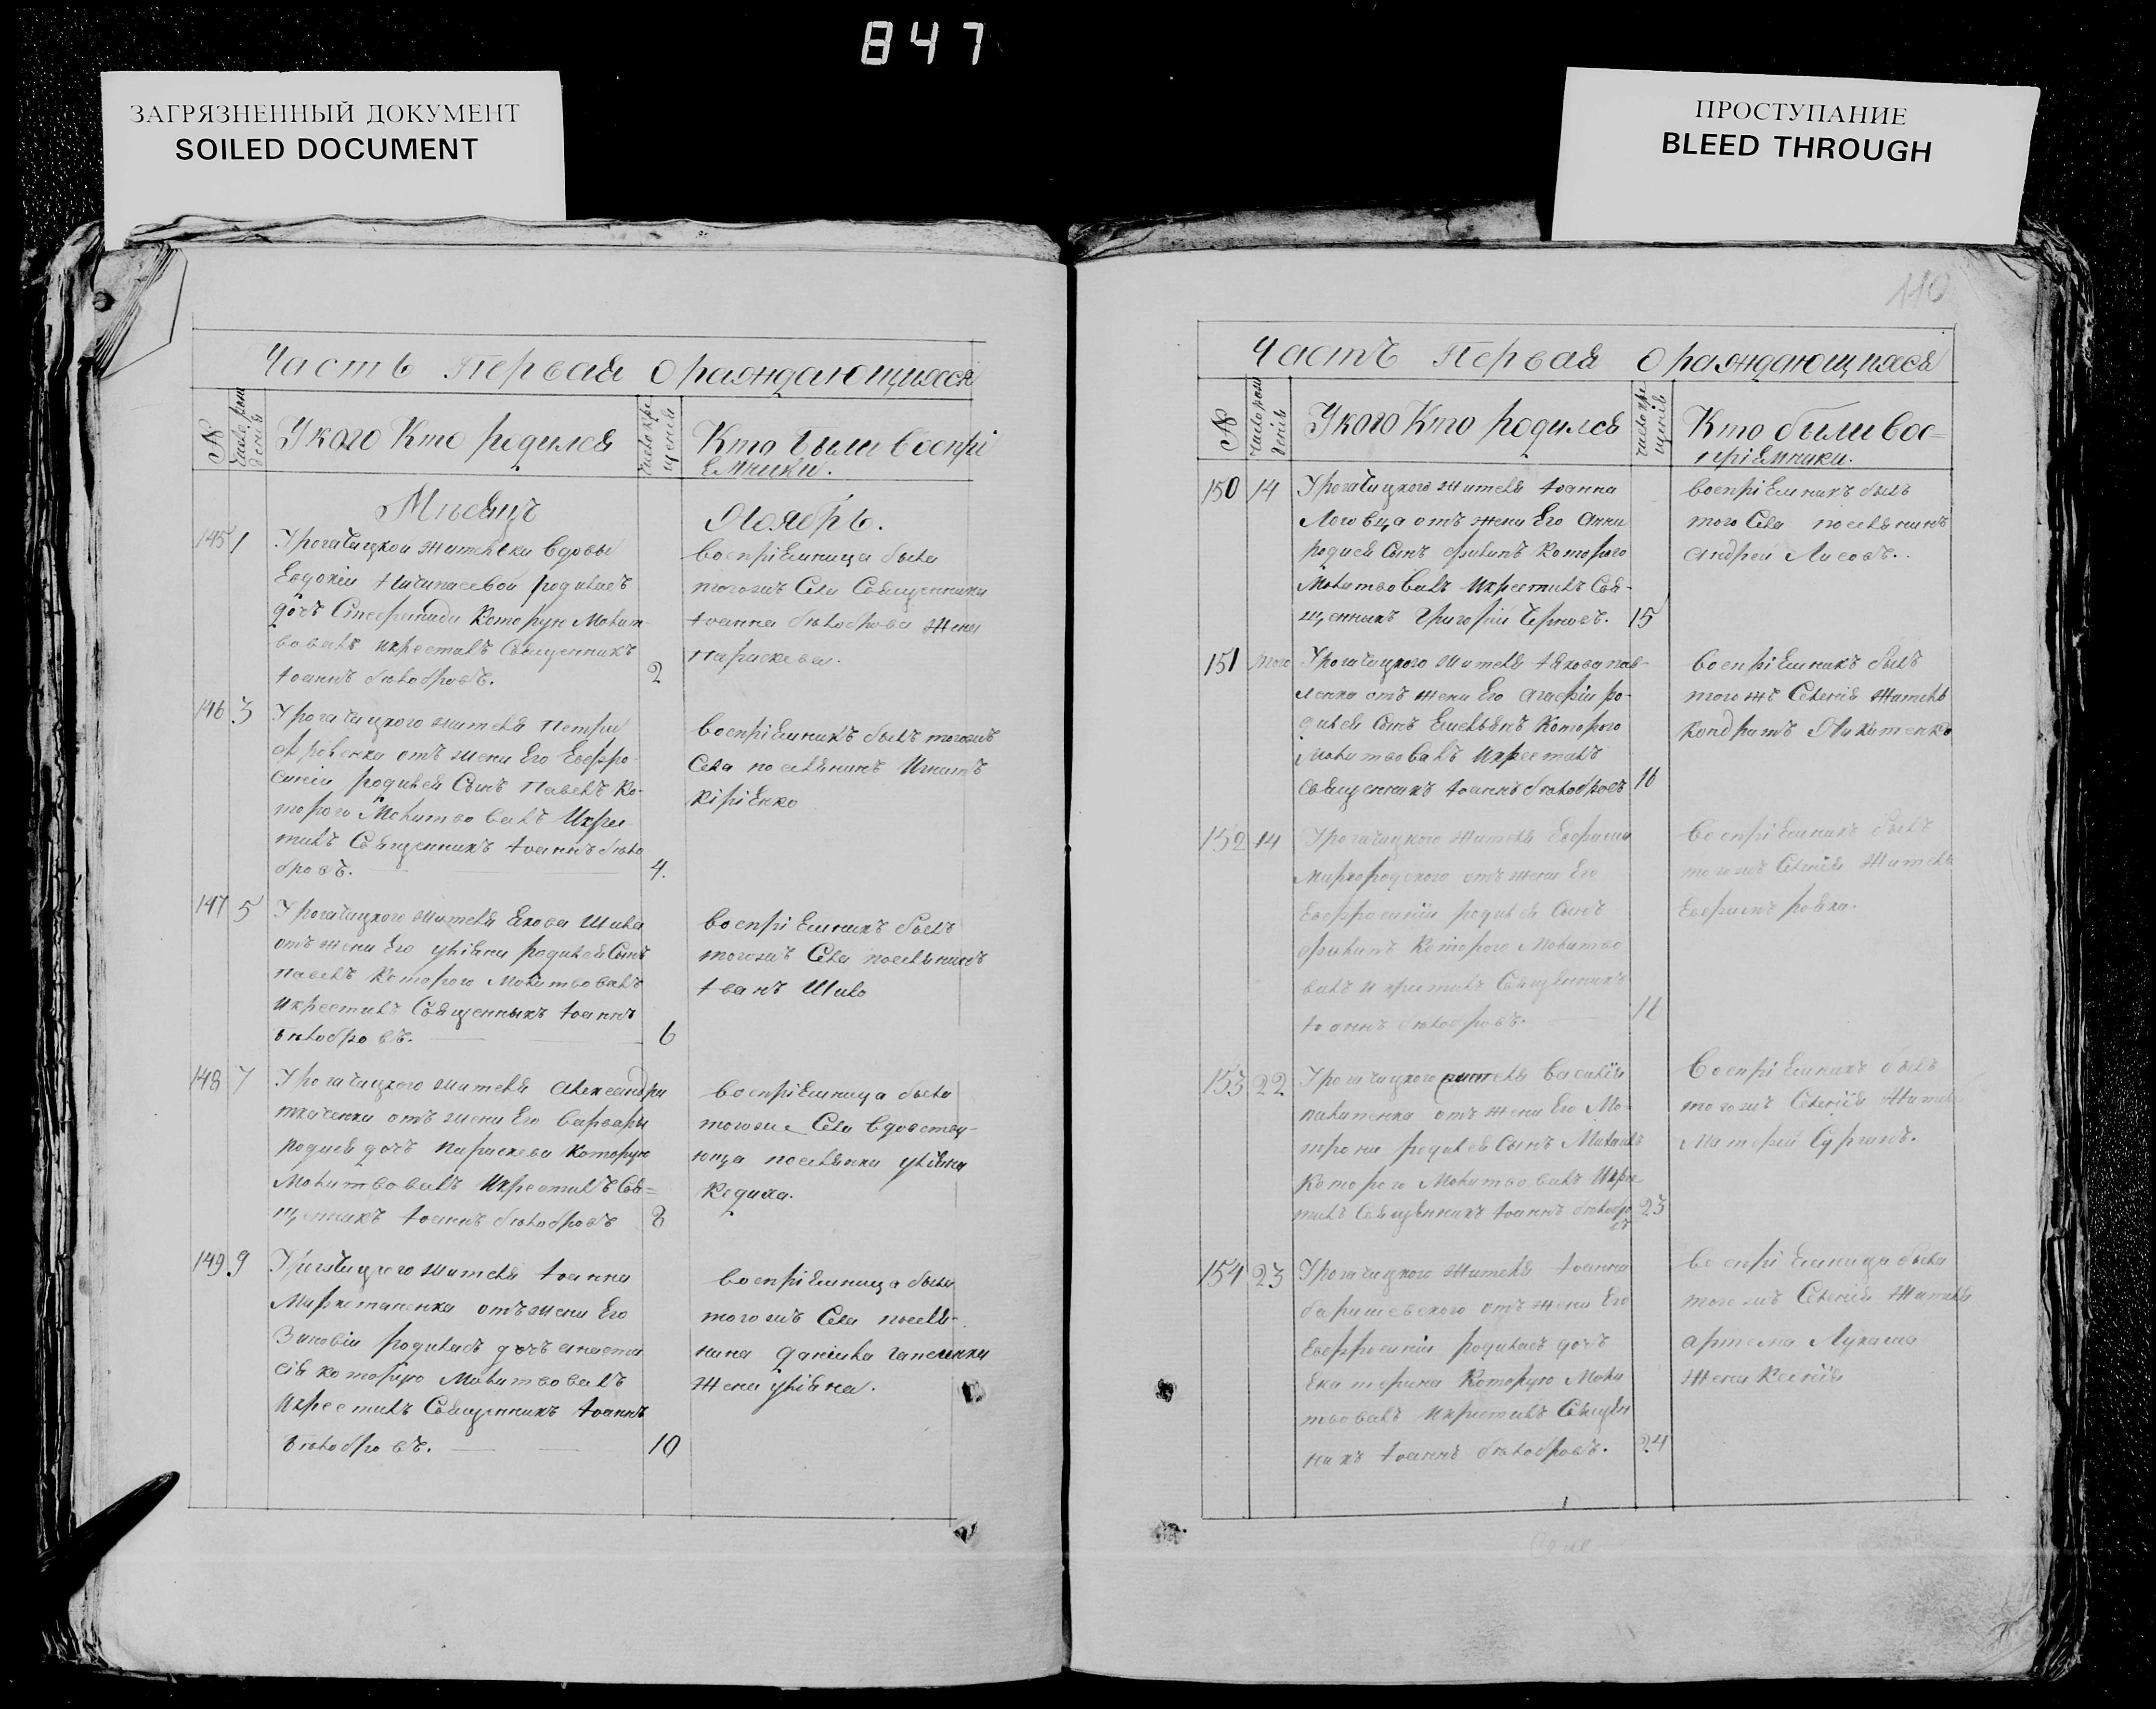 847
ЗАГРЯЗНЕННЫЙ ДОКУМЕНТ
SOILED DOCUMENT
ПРОСТУПАНИЕ
BLEED THROUGH
Часть первая о раждающихся
№
Число рож
денія
У кого кто родился
Число кре
щенія
Кто были воспрі
емники.
Мѣсяцъ
Ноябрь.
145 1
У рогачицкой жительки вдовы
Евдокіи родилась
дочь Стефанида которую молит
вовалъ и крестилъ Священникъ
Іоаннъ бѣлобровъ. 2
воспріемница была
тогожъ Села Священника
Іоанна бѣлоброва жена
параскева.
146 3
У рогачицкого жителя петра
от жени Его Евфро
синіи родился Сынъ павелъ ко-
торого Молитвовалъ и крес
тилъ Священникъ Іоаннъ бѣло
бровъ. 4.
воспріемникъ былъ тогожъ
Села поселянинъ Игнатъ
кіріенко
147 5
У рогачицкого жителя Якова Шила
отъ жени Его уліяни родился Сынъ
павелъ которого Молитвовалъ
и крестилъ Священникъ Іоаннъ
бѣлобровъ. 6
воспріемникъ былъ
тогожъ Села поселянинъ
Іванъ Шило
148 7
У рогачицкого жителя Александра
ткаченка отъ жени Его варвары
родися дочь параскева которую
Молитвовалъ и крестилъ Свя=
щенникъ Іоаннъ бѣлобровъ 8
воспріемница была
тогоже Села вдовству-
юща поселянка уліяна
кедиха.
149 9
У рогачицкого жителя Іоанна
Мархотаненка отъ жени Его
Зиновіи родилась дочь анаста
сія которую Молитвовалъ
и крестилъ Священникъ Іоаннъ
бѣлобровъ. 10
воспріемница была
тогожъ Села поселя-
нина даніила гапеленка
жена уліяна.
110
Часть первая о раждающихся
№
Число рож
денія
У кого кто родился
Число кре
щенія
Кто были вос=
пріемники.
150 14
У рогачицкого жителя Іоанна
Логовца отъ жени Его анни
родися Сынъ филипъ которого
Молитвовалъ и крестилъ Свя-
щенникъ Григорій Черновъ. 15
воспріемникъ былъ
того Села поселянинъ
андрей Лисовъ.
151 того
У рогачицкого жителя Якова пав-
ленка отъ жени Его агафіи ро-
дился Сынъ Емельянъ которого
Молитвовалъ и крестилъ
Священникъ Іоаннъ бѣлобровъ 16
воспріемникъ былъ
того жъ Селенія житель
кондратъ Никитенко
152 14
У рогачицкого жителя Евфима
Миргородского отъ жени Его
Евфросиніи родился Сынъ
филипъ которого Молитво
валъ и крестилъ Священникъ
Іоаннъ бѣлобровъ. 16
воспріемникъ былъ
тогожъ Селенія житель
Евфимъ ровха.
153 22
У рогачицкого жителя василія
пилипенка отъ жени Его Ма-
трони родился Сынъ Михаилъ
которого Молитвовалъ и крес
тилъ Священникъ Іоаннъ бѣлобро
въ 23
воспріемникъ былъ
тогожъ Селенія житель
Матфей Сургинъ.
154 23
У рогачицкого жителя Іоанна
баришевского отъ жени Его
Евфросиніи родилась дочь
Екатерина которую Моли
твовалъ и крестилъ Священ
никъ Іоаннъ бѣлобровъ. 24
воспріемница была
тогожъ Селенія жителя
артема Лукаша
жена ксенія